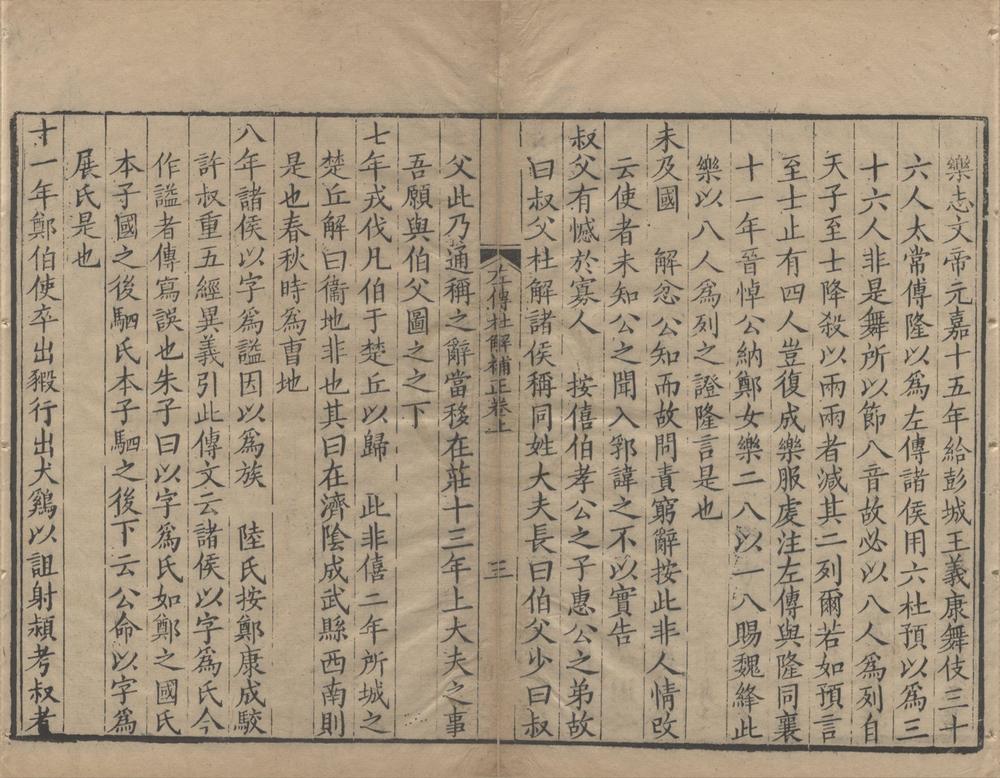 樂志文帝元嘉十五年給彭城王義康舞伎三十
六人太常傅隆以爲左傳諸侯用六杜預以爲三
十六人非是舞所以節八音故必以八人爲列自
天子至士降殺以兩兩者減其二列爾若如預言
至士止有四人豈復成樂服虔注左傳與隆同襄
十一年晉悼公納鄭女樂二八以一八賜魏絳此
樂以八人爲列之證隆言是也
未及國　解忿公知而故問責窮辭按此非人情改
云使者未知公之聞入郛諱之不以實告
叔父有憾於寡人　按僖伯孝公之子惠公之弟故
曰叔父杜解諸侯稱同姓大夫長曰伯父少曰叔
左傳杜解補正卷上　三
父此乃通稱之辭當移在莊十三年上大夫之事
吾願與伯父圖之之下
七年戎伐凡伯于楚丘以歸　此非僖二年所城之
楚丘解曰衞地非也其曰在濟陰成武縣西南則
是也春秋時爲曹地
八年諸侯以字爲謚因以爲族　陸氏按鄭康成駮
許叔重五經異義引此傳文云諸侯以字爲氏今
作謚者傳寫誤也朱子曰以字爲氏如鄭之國氏
本子國之後駟氏本子駟之後下云公命以字爲
展氏是也
十一年鄭伯使卒出豭行出犬鷄以詛射潁考叔者